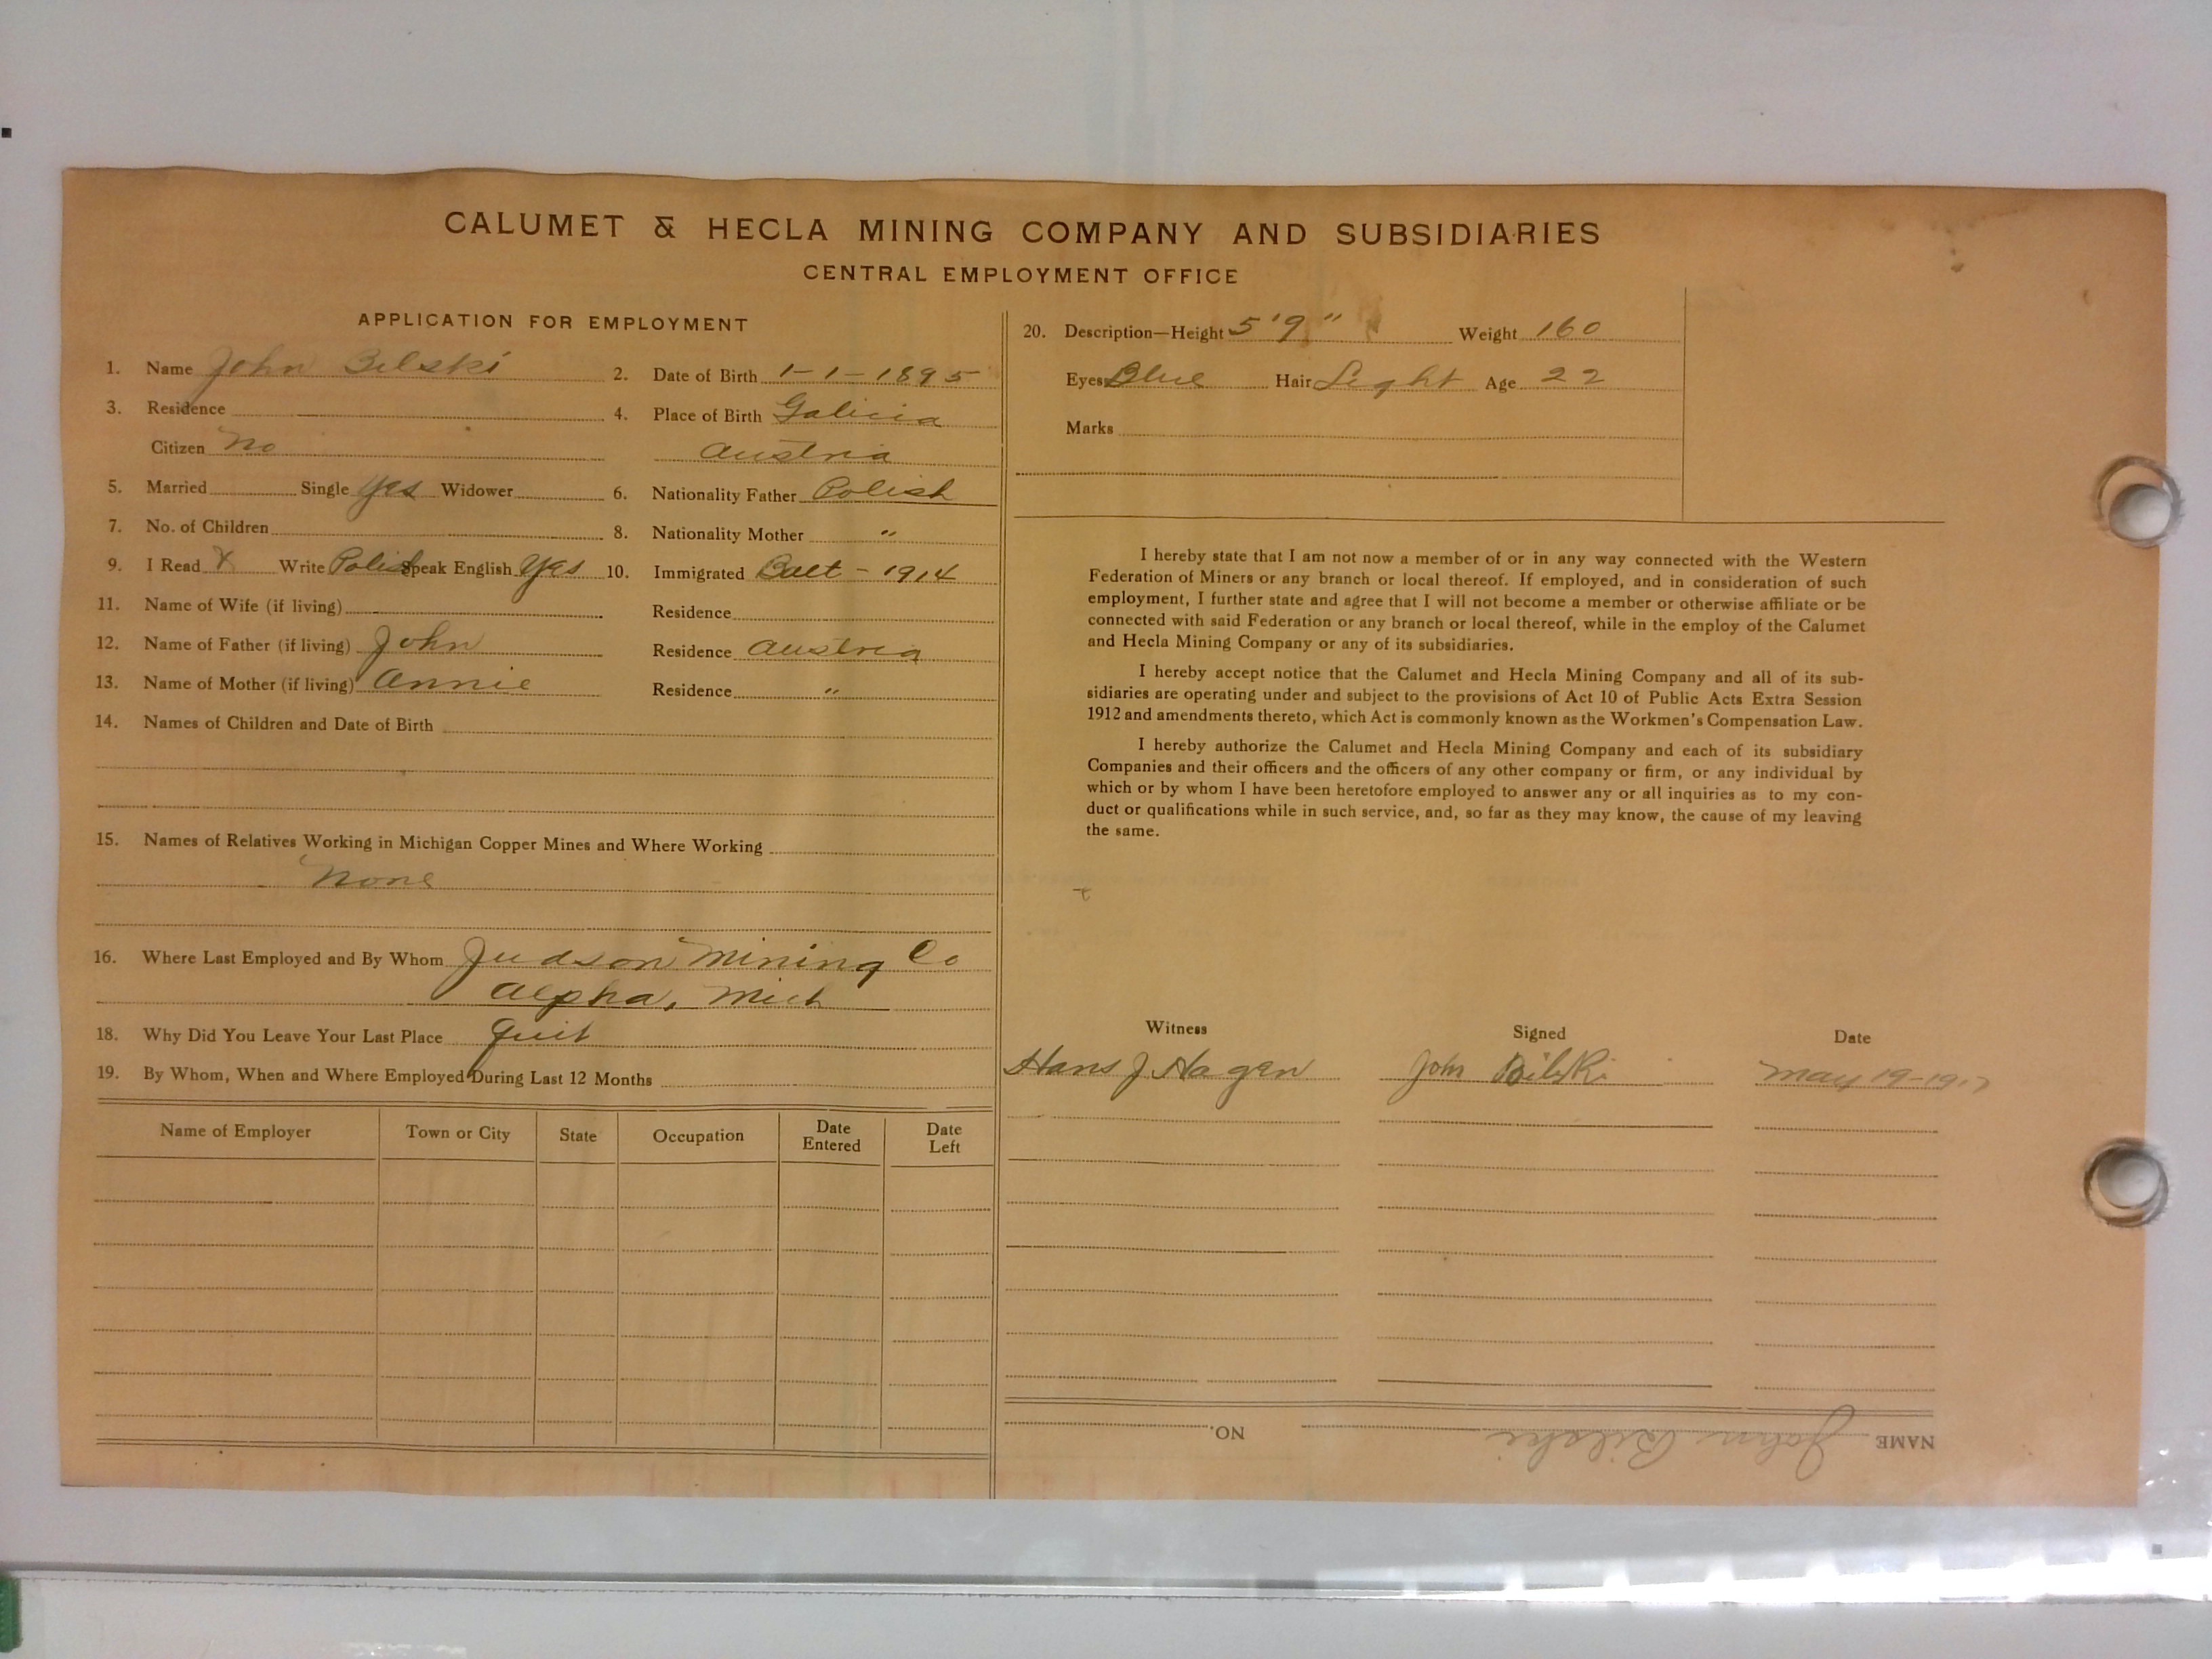 CALUMET & HECLA MINING COMPANY AND SUBSIDIARIES
CENTRAL EMPLOYMENT OFFICE
APPLICATION FOR EMPLOYMENT
1. Name John Bilski 2. Date of Birth 1-1-1895
3. Residence 4. Place of Birth Galicia
Citizen No Austria
5. Married Single Yes Widower 6. Nationality Father Polish
7. No. of Children 8. Nationality Mother "
9. I Read X Write Polish Speak English Yes 10. Immigrated Balt - 1914
11. Name of Wife (if living) Residence
12. Name of Father (if living) John Residence Austria
13. Name of Mother (if living) Annie Residence "
14. Names of Children and Date of Birth
15. Names of Relatives Working in Michigan Copper Mines and Where Working
None
16. Where Last Employed and By Whom Judson Mining Co
Alpha, Mich
18. Why Did You Leave Your Last Place Quit
19. By Whom, When and Where Employed During Last 12 Months
Name of Employer Town or City State Occupation Date Entered Date Left
20. Description—Height 5'9" Weight 160
Eyes Blue Hair Light Age 22
Marks
I hereby state that I am not now a member of or in any way connected with the Western
Federation of Miners or any branch or local thereof. If employed, and in consideration of such
employment, I further state and agree that I will not become a member or otherwise affiliate or be
connected with said Federation or any branch or local thereof, while in the employ of the Calumet
and Hecla Mining Company or any of its subsidiaries.
I hereby accept notice that the Calumet and Hecla Mining Company and all of its sub-
sidiaries are operating under and subject to the provisions of Act 10 of Public Acts Extra Session
1912 and amendments thereto, which Act is commonly known as the Workmen's Compensation Law.
I hereby authorize the Calumet and Hecla Mining Company and each of its subsidiary
Companies and their officers and the officers of any other company or firm, or any individual by
which or by whom I have been heretofore employed to answer any or all inquiries as to my con-
duct or qualifications while in such service, and, so far as they may know, the cause of my leaving
the same.
Witness Signed Date
Hans J Hagen John Bilski May 19-1917
NAME John Bilski NO.